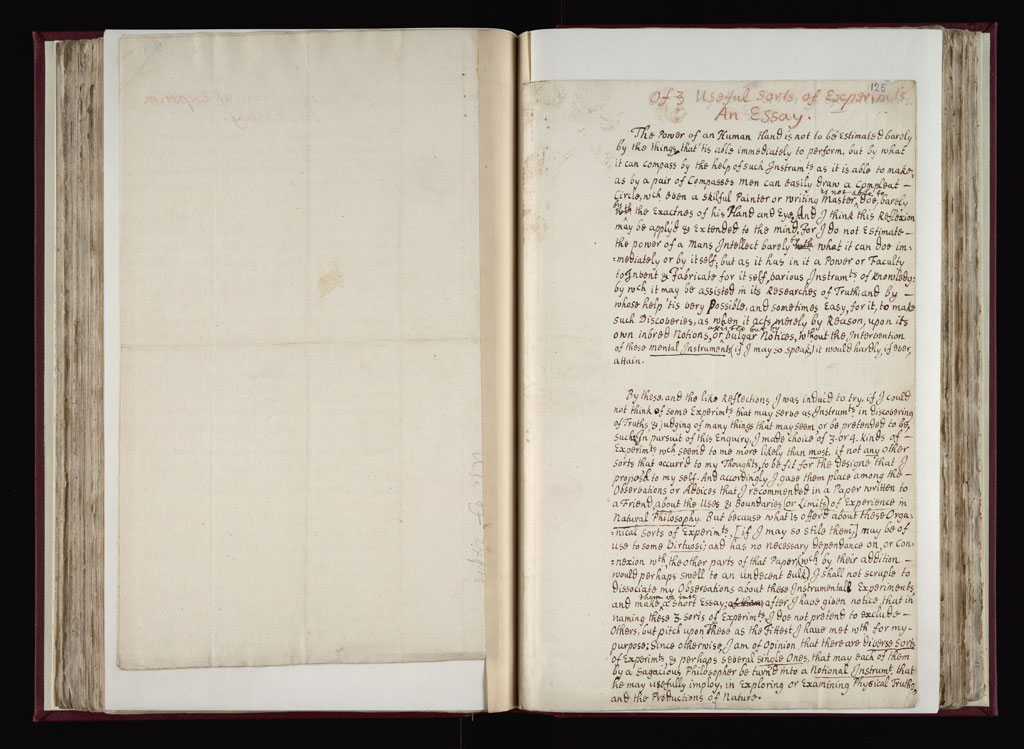 125
Of 3 Useful Sorts of Experimts.
An Essay.
The Power of an Human Hand is not to be Estimated barely
by the things that 'tis able immediately to perform, but by what
it can compass by the help of such Instrumts as it is able to make;
as by a pair of Compasses men can easily draw a Compleat —
is not able to
Circle, wch even a skilful Painter or writing Master, doe, barely
by
with the Exactnes of his Hand and Eye. And I think this Reflexion
may be apply'd & Extended to the mind, for I do not Estimate —
the power of a Mans Intellect barely what it can doe im-
=mediately or by itself; but as it has in it a Power or Faculty
to Invent & Fabricate for it self, various Instrumts of knowledg;
by wch it may be assisted in its Researches of Truth; and by —
whose help 'tis very Possible, and sometimes Easy, for it, to make
such Discoveries, as when it acts merely by Reason, upon its
assisted but by
own inbred Notions, or vulgar Notices, wthout the, Intervention
of these mental Instruments (if I may so speak) it would hardly, if ever,
attain.
By these, and the like Reflections I was induc'd to try, if I could
not think of some Experimts that may serve as Instrumts in discovering
of Truths, & judging of many things that may seem or be pretended to be,
such; in pursuit of this Enquiry, I made choice of 3. or 4. kinds of —
Experimts wch seem'd to me more likely than most, if not any other
sorts that occurr'd to my Thoughts, to be fit for the designs that I
propos'd to my self. And accordingly I gave them place among the —
Observations or Advices that I recommended in a Paper written to
a Friend, about the Uses & Boundaries (or Limits) of Experience in
Natural Philosophy. But because what is offer'd about these Orga-
=nical sorts of Experimts, [if I may so stile them,] may be of
use to some Virtuosi; and has no necessary dependance on, or Con-
=nexion wth, the other parts of that Paper, (wch by their addition —
would perhaps swell to an undecent bulk) I shall not scruple to
dissociate my Observations about these Instrumental Experiments,
them up into
and make a short Essay; of them, after I have given notice, that in
naming these 3 sorts of Experimts I doe not pretend to exclude —
Others, but pitch upon These as the Fittest I have met wth for my-
purpose; Since otherwise, I am of Opinion that there are diverse sorts
of Experimts, & perhaps several single Ones, that may each of them
by a Sagacious Philosopher be turn'd into a Notional Instrumt, that
he may usefully imploy, in Exploring or Examining Physical Truths,
and the Productions of Nature.